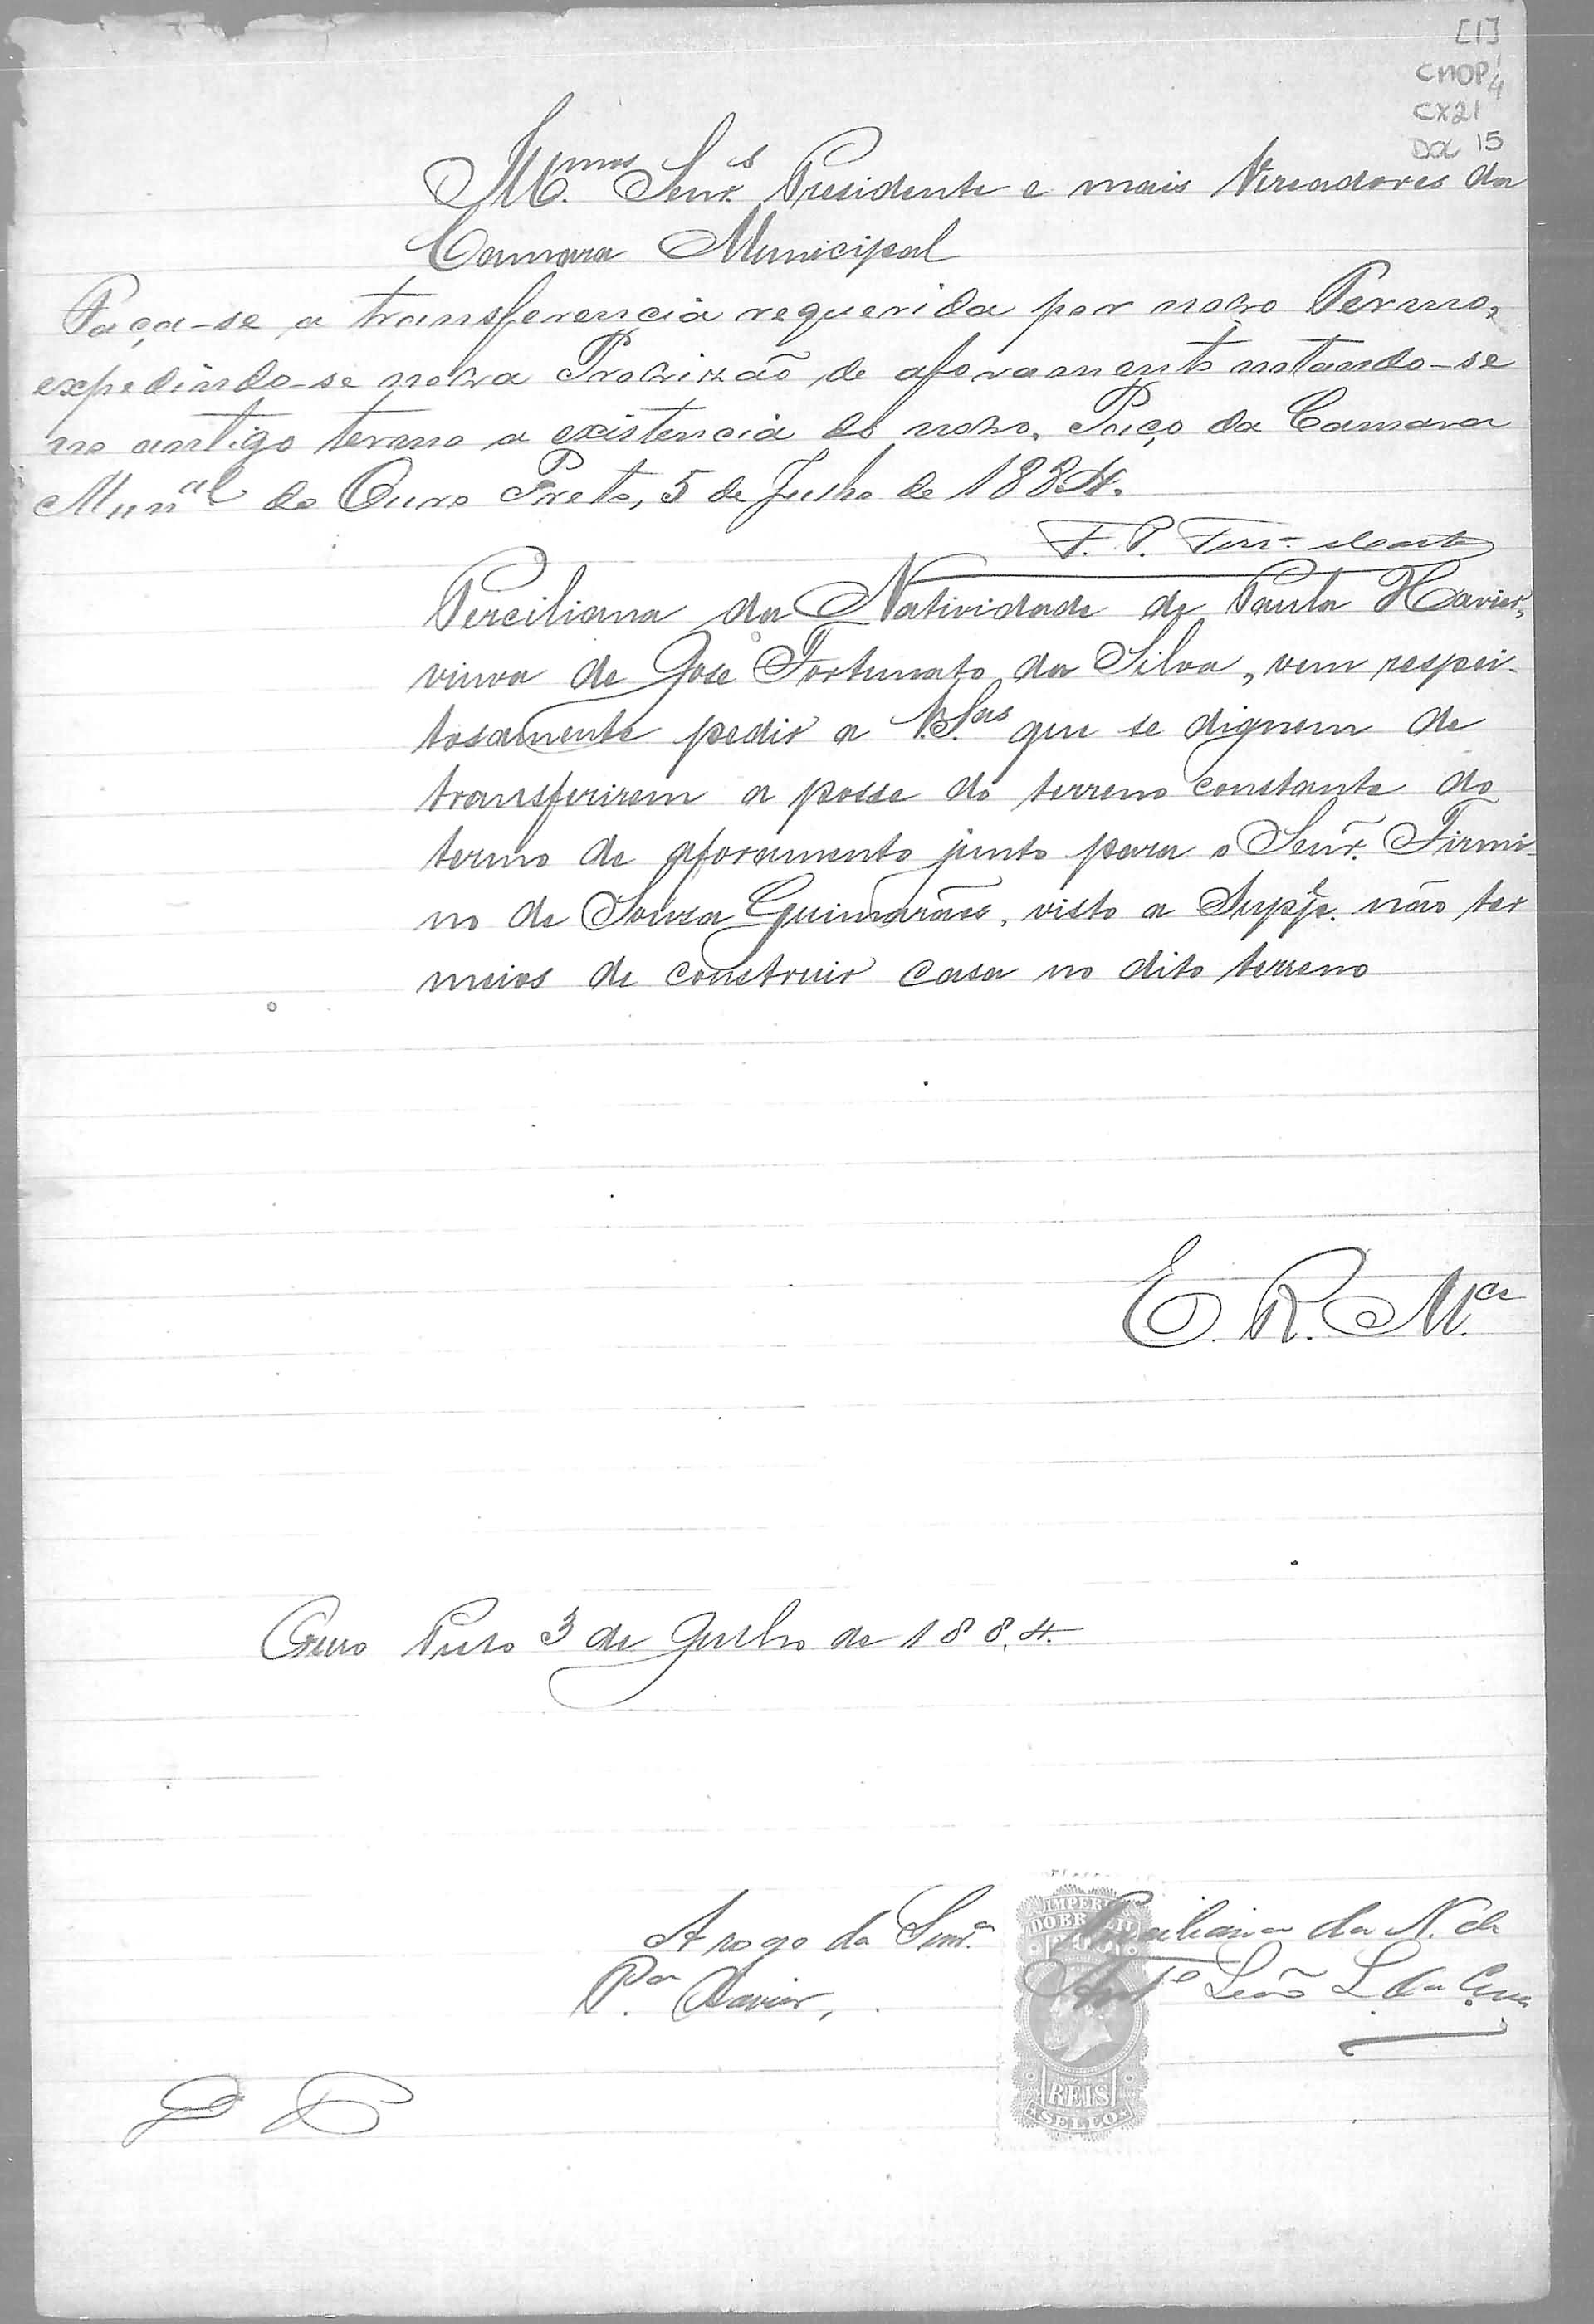 [1]
CMOP/
4
CX21
DOC 15
Ill.mos Senr.s Presidente e mais Vereadores da
Camara Municipal
Faça-se a transferencia requerida por novo Termo,
expedindo-se nova Provizão de aforamento notando-se
no antigo termo a existencia do novo. Paço da Camara
Mun.al do Ouro Preto, 5 de Julho de 1884.
F. P. Ferr.a
Perciliana da Natividade de Paula Xavier,
viuva de José Fortunato da Silva, vem respei-
tosamente pedir a V.S.as que se dignem de
transferirem a posse do terreno constante do
termo de aforamento junto para o Senr. Firmi-
no de Souza Guimarães, visto a Supp.e não ter
meios de construir casa no dito terreno
E. R. M.ce
Ouro Preto 3 de Julho de 1884.
A rogo da Senr.a Perciliana da N. de
P.la Xavier, Ant.o Leão L. da
IMPERIO
DO BRAZIL
REIS
SELLO